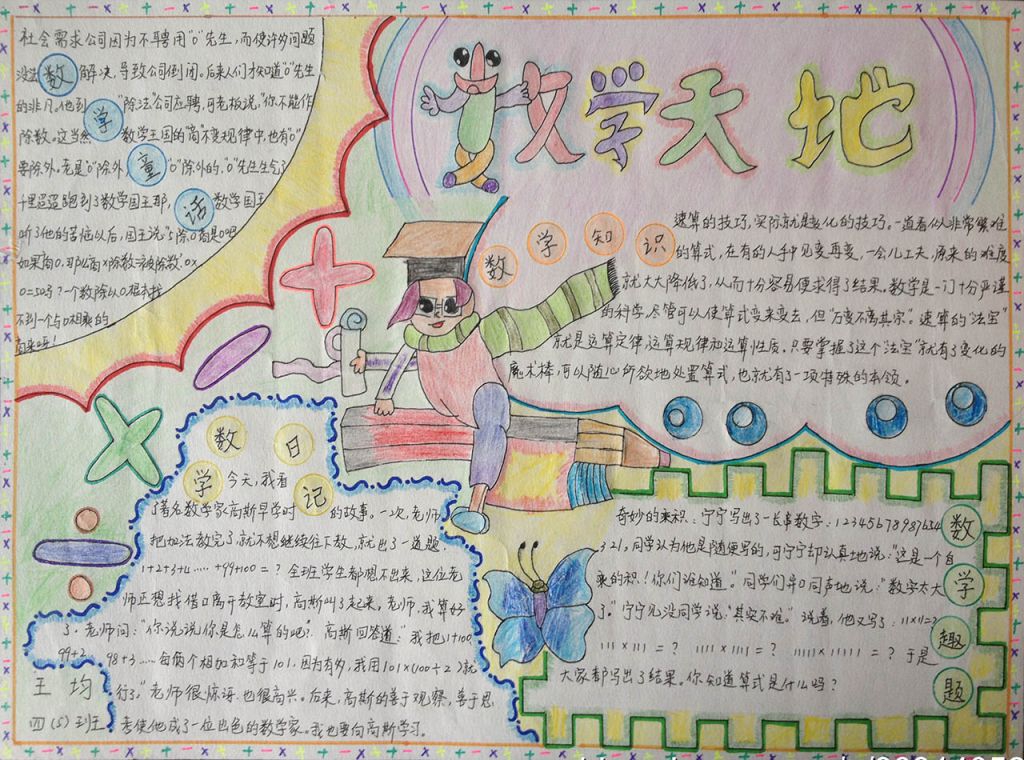 数学天地
数学童话
社会需求公司因为不聘用"0"先生,而使许多问题
没法解决,导致公司倒闭。后来人们才知道"0"先生,
的非凡。他到"除法"公司应聘,可老板说:"你不能作
除数。这当然 数学王国的商"不变规律中,也有"0"
要除外。老是"0"除外,"0"除外的,"0"先生生气了
千里迢迢跑到了数学国王那,数学国王
听了他的苦恼以后,国王说:"5除0商是0吧
如果商0,那么商×除数=被除数:0×
0=50了?一个数除以0根本找
不到一个与0相乘的
商来呀!
数学知识
速算的技巧,实际就是变化的技巧。一道看似从非常繁难
的算式,在有的人手中见变再变,一会儿工夫,原来的难度
就大大降低了,从而十分容易便求得了结果。数学是一门十分严谨
的科学,尽管可以使算式变来变去,但"万变不离其宗"。速算的"法宝"
就是运算定律,运算规律和运算性质。只要掌握了这个"法宝"就有了变化的
魔术棒,可以随心所欲地处置算式,也就有了一项特殊的本领。
数学日记
今天,我看
了著名数学家高斯早学时的故事。一次,老师
把加法教完了,就不想继续往下教,就出了一道题:
1+2+3+4……+99+100=? 全班学生都想不出来,这位老
师正想找借口离开教室时,高斯叫了起来,老师,我算好
了。老师问:"你说说你是怎么算的吧?高斯回答道:"我把1+100
99+2 98+3……每俩个相加和等于101.因为有妙,我用101×(100÷2)就
行了。"老师很惊讶.也很高兴。后来,高斯的善于观察,善于思
考使他成了一位出色的数学家。我也要向高斯学习。
王均
四(5)班
数学趣题
奇妙的乘积:宁宁写出了一长串数字:12345678987654
321,同学认为他是随便写的,可宁宁却认真地说:"这是一个自
乘的积!你们谁知道"。同学们异口同声地说:"数字太大
了。"宁宁见没同学说:"其实不难"说着,他又写了:11×11=?
111×111=? 1111×1111=? 11111×11111=?于是
大家都写出了结果。你知道算式是什么吗?